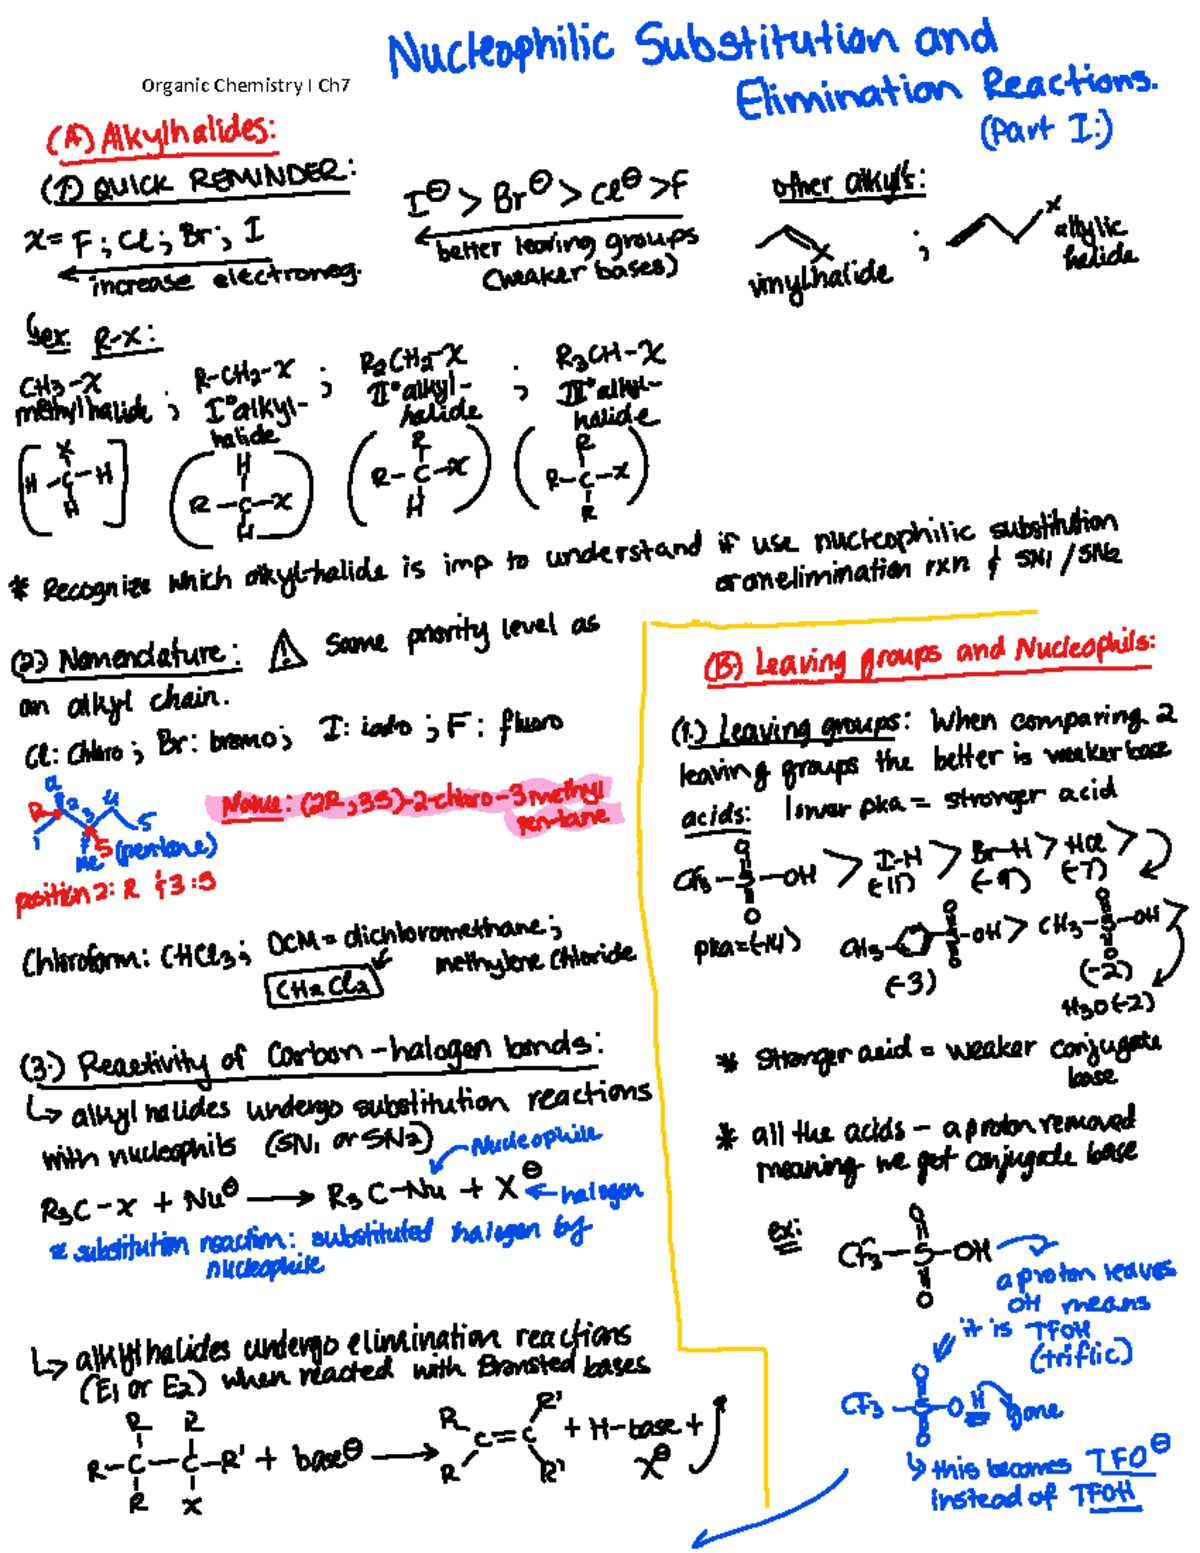 Nucleophilic Substitution and
Elimination Reactions.
(Part I:)
Organic Chemistry I Ch7
(A) Alkylhalides:
(1) QUICK REMINDER:
X = F ; Cl ; Br ; I
increase electroneg.
I⊖ > Br⊖ > Cl⊖ > F
better leaving groups
(weaker bases)
other alkyl's:
X
vinylhalide
;
X
allylic
halide
↳ ex: R-X:
CH3-X
methylhalide
;
R-CH2-X
I° alkyl-
halide
;
R2CH2-X
II° alkyl-
halide
;
R3CH-X
III° alkyl-
halide
X
H - C - H
H
H
R - C - X
H
R
R - C - X
H
R
R - C - X
R
* Recognize which alkyl-halide is imp to understand if use nucleophilic substitution
or an elimination rxn & SN1 / SN2
(2) Nomenclature: ⚠ Same priority level as
an alkyl chain.
Cl: Chloro ; Br: bromo ; I: iodo ; F: fluoro
Cl
R 2 3 4
1 S 5
Me (pentane)
position 2: R & 3 : S
Name: (2R, 3S)-2-chloro-3methyl
pentane
Chloroform: CHCl3 ; DCM = dichloromethane ;
methylene chloride
CH2Cl2
(3.) Reactivity of Carbon-halogen bonds:
↳ alkyl halides undergo substitution reactions
with nucleophils (SN1 or SN2)
Nucleophile
R3C-X + Nu⊖ → R3C-Nu + X⊖ ← halogen
* substitution reaction: substituted halogen by
nucleophile
↳ alkylhalides undergo elimination reactions
(E1 or E2) when reacted with Bronsted bases
R R
R-C-C-R' + base⊖ →
R X
R R'
C=C
R R'
+ H-base +
X⊖
(B) Leaving groups and Nucleophils:
(1.) Leaving groups: When comparing 2
leaving groups the better is weaker base
acids: lower pka = stronger acid
O
CF3-S-OH > I-H > Br-H > HCl >
O (-11) (-9) (-7)
pka=(-14)
O
CH3- S -OH >
O
(-3)
O
CH3-S-OH >
O
(-2)
H3O (-2)
* Stronger acid = weaker conjugate
base
* all the acids - a proton removed
meaning we get conjugate base
ex:
O
CF3-S-OH
O
a proton leaves
OH means
it is TFOH
(triflic)
O
CF3-S-O H gone
O
↳ this becomes TFO⊖
instead of TFOH